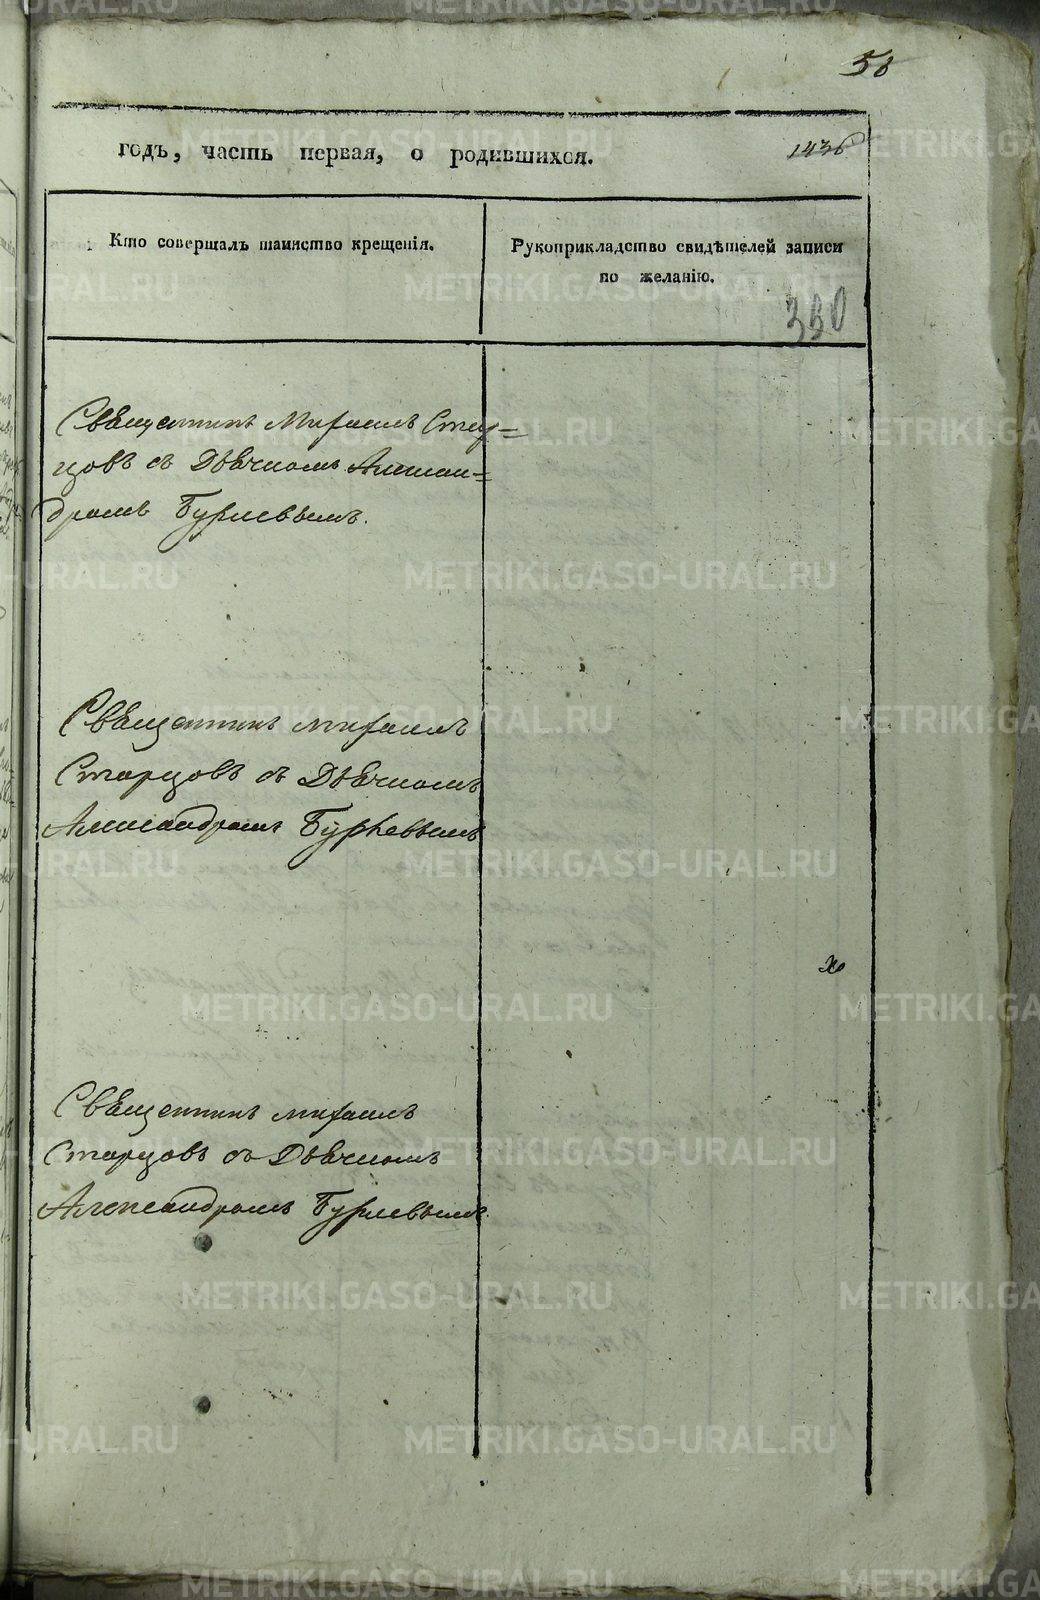 56
годъ, часть первая, о родившихся.
1436
Кто совершалъ таинство крещенія.
Рукоприкладство свидѣтелей записи
по желанію.
330
Священникъ Михаилъ Стар=
цовъ съ Дьячкомъ Алексан=
дромъ Бурлевымъ.
Священникъ Михаилъ
Старцовъ съ Дьячкомъ
Александромъ Бурлевымъ
Священникъ Михаилъ
Старцовъ съ Дьячкомъ
Александромъ Бурлевымъ.
METRIKI.GASO-URAL.RU